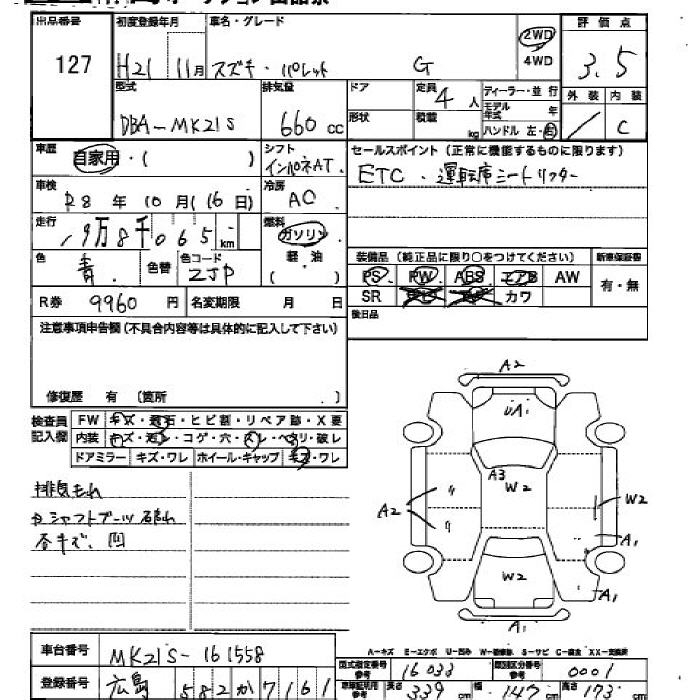 出品番号 初度登録年月 車名・グレード 評価点
127 H21 11月 スズキ・パレット G 2WD 4WD 3.5
型式 排気量 ドア 定員 4人 ディーラー・並行 外装 内装
モデル年式 年
DBA-MK21S 660cc 形状 積載 kg ハンドル 左・右 / C
車歴 自家用・( ) シフト インパネAT. セールスポイント(正常に機能するものに限ります)
ETC . 運転席シートリフター
車検 R8年10月(16日) 冷房 AC
走行 19万8千065km 燃料 ガソリン.
軽・油
( )
色 青. 色替 色コード ZJP
装備品(純正品に限り○をつけてください) 新車保証書
PS PW ABS エアB AW 有・無
SR カワ
R券 9960円 名変期限 月 日 後日品
注意事項申告欄(不具合内容等は具体的に記入して下さい)
修復歴 有 (箇所 . )
検査員記入欄
FW キズ・飛石・ヒビ割・リペア跡・X要
内装 キズ・コゲ・穴・スレ・ヘタリ・破レ
ドアミラー キズ・ワレ ホイール・キャップ キズ・ワレ
排気もれ
シャフトブーツ
各キズ、凹
A2
UA1
A3
W2
A2
W2
A1
W2
A1
A1
A-キズ E-エクボ U-凹み W-補修跡 S-サビ C-腐食 XX-交換済
車台番号 MK21S-161558
型式指定番号 参考 16033 類別区分番号 参考 0001
登録番号 広島 582か7161
車庫証明用 参考 長さ 339cm 幅 147cm 高さ 173cm